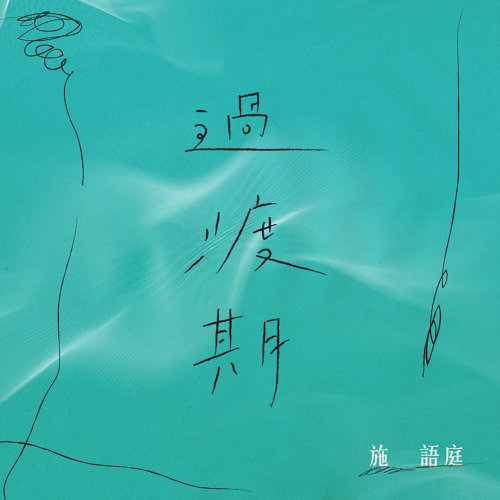 過
渡
期
施 語庭